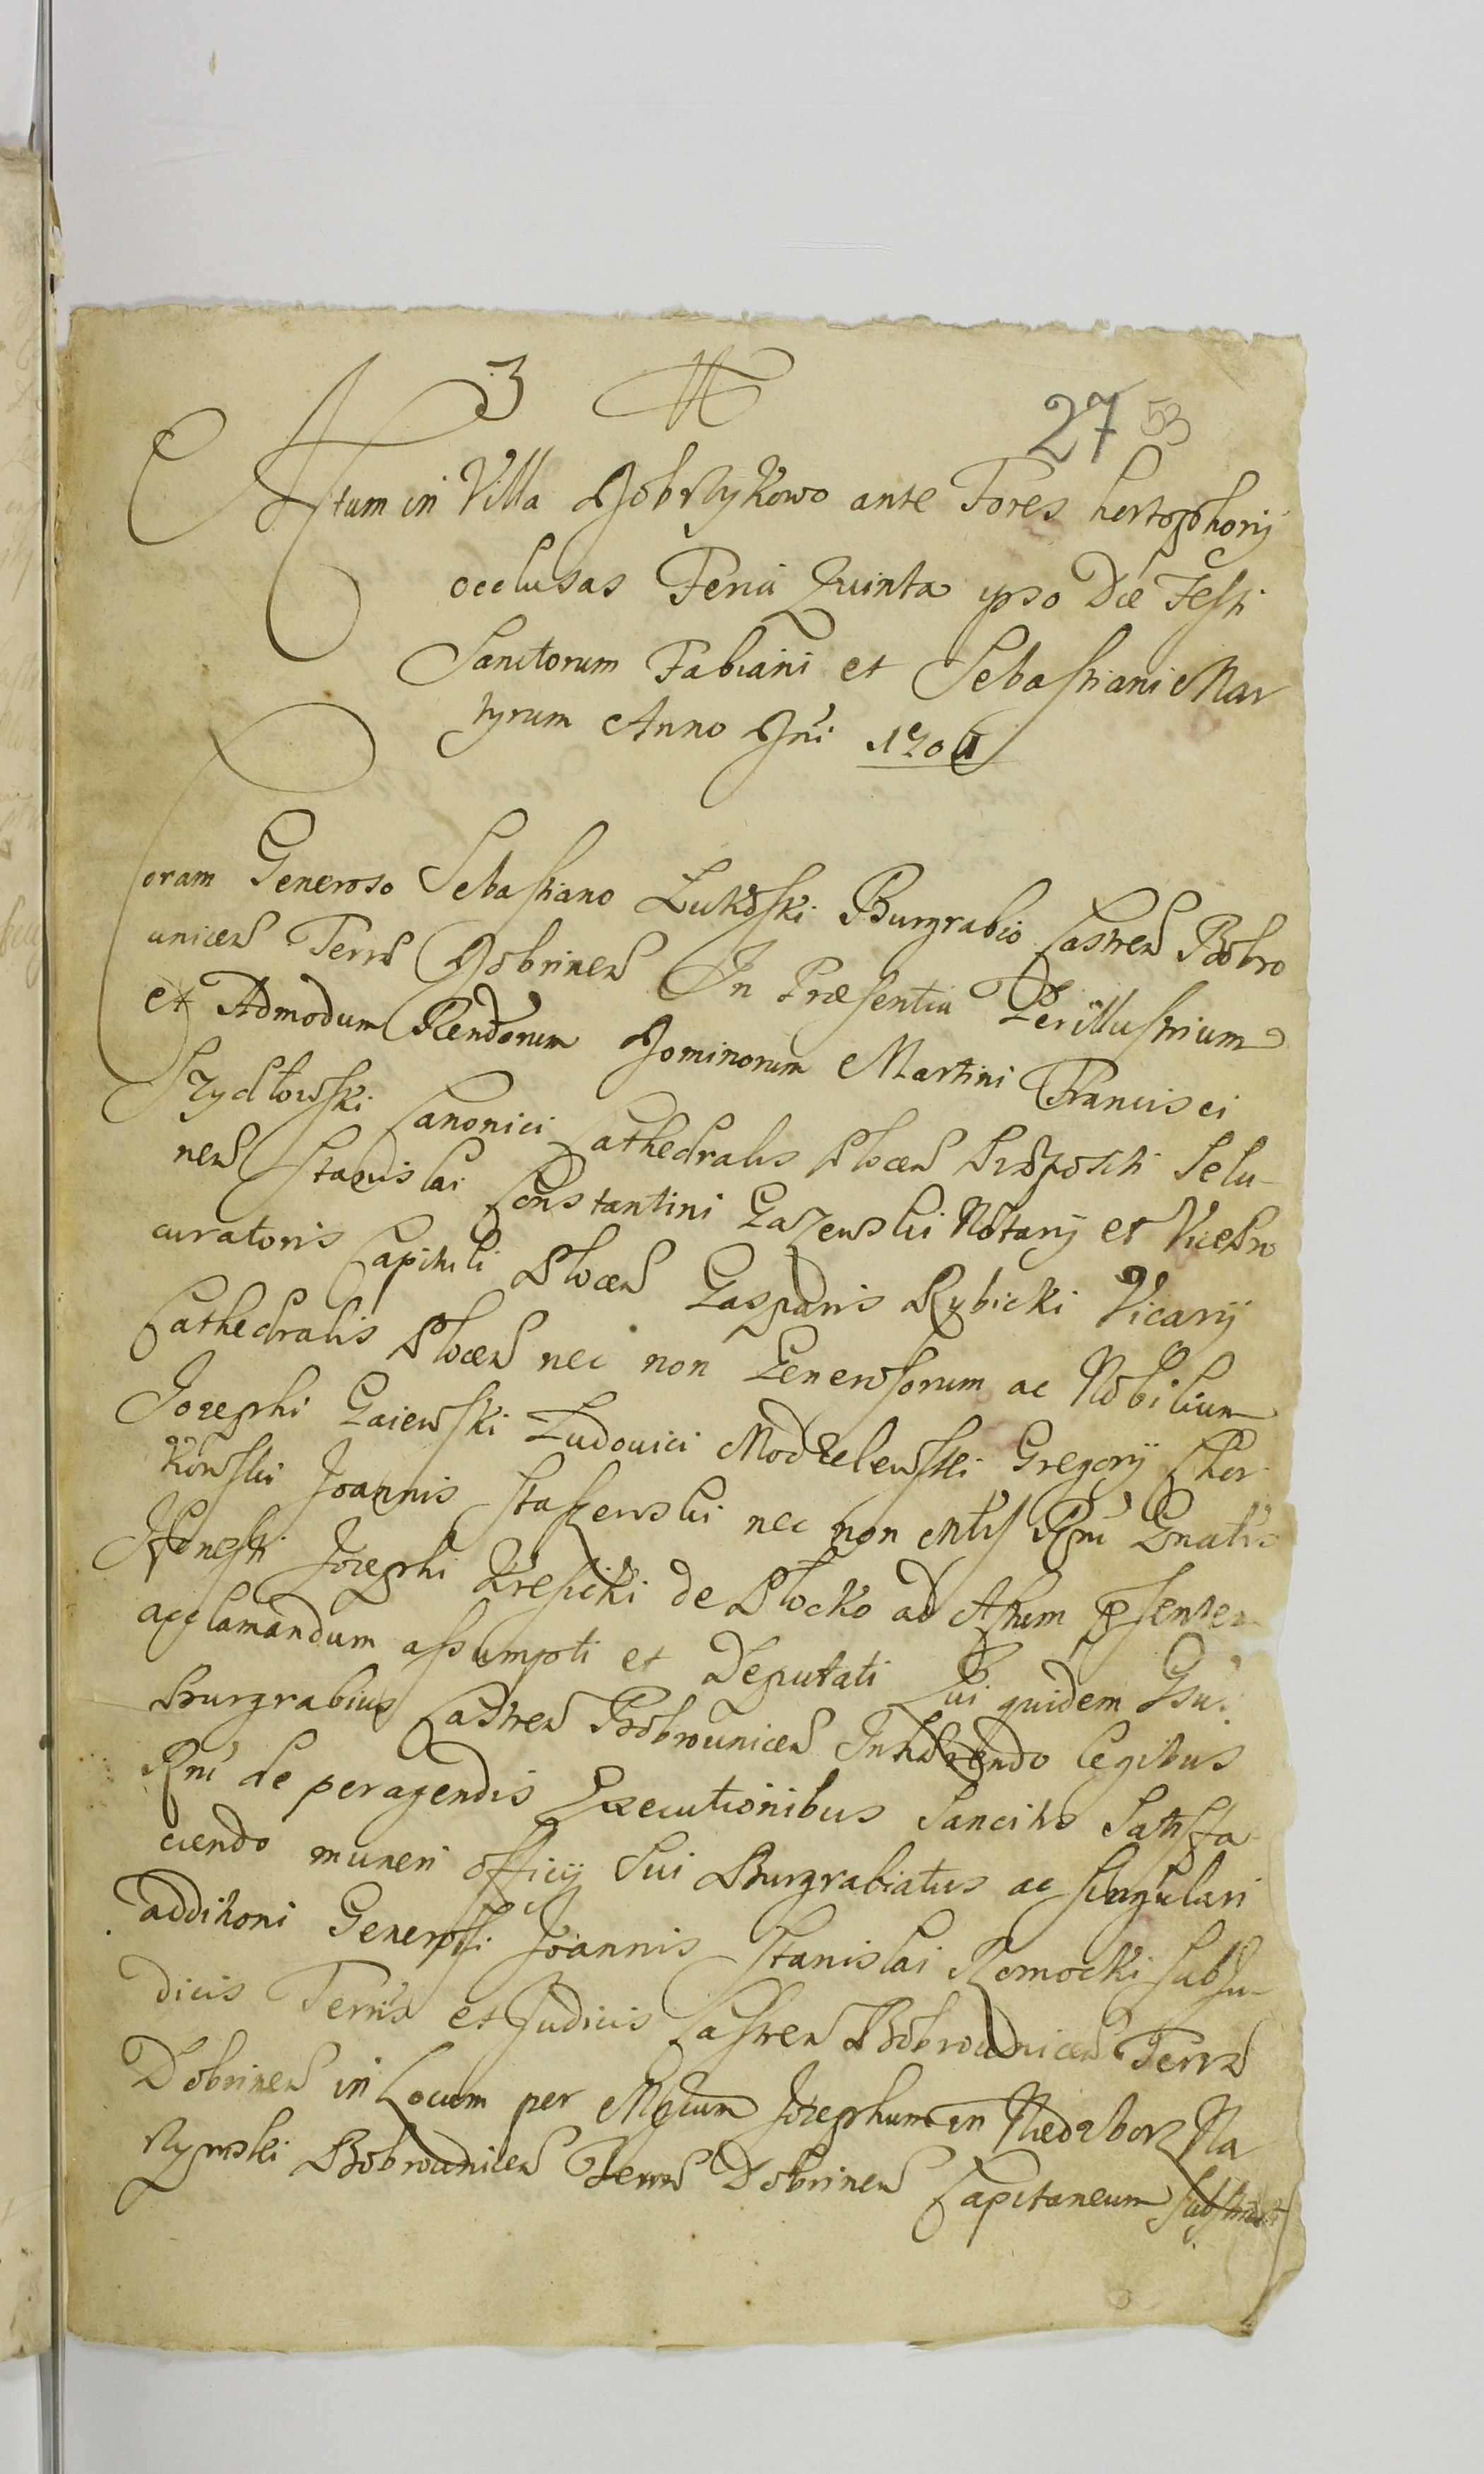 3
27 53
Actum in Villa Dobrzykowo ante Fores hortophorij
occlusas Feria Quinta ipso Die Festi
Sanctorum Fabiani et Sebastiani Mar
tyrum Anno Dni
Coram Generoso Sebastiano Lukoski Burgrabio Castren Bobro
unicen Terrae Dobrinen In Praesentia Perillustrium
et Admodum Rendorum Dominorum Martini Francisci
Szydłowski Canonici Cathedralis Plocen Praepositi Selu-
nen Stanislai Constantini Gazewski Notarij et Vicepro
curatoris Capituli Plocen Gasparis Rybicki Vicarij
Cathedralis Plocen nec non Generosorum ac Nobilium
Jozephi Gaiewski Ludovici Modzelewski Gregorij Cher
kowski Joannis nec non Mtis Rni Gnalis
Honesti Jozephi de Plocko ad Actum psentem
acclamandum assumpti et Deputati Qui quidem Gsus
Burgrabius Castren Bobrounicen Inhaerendo legibus
Rni de peragendis Executionibus Sancitis Satisfa
ciendo muneri officij Sui Burgrabiatus ac singulari
additioni Generosi Joannis Stanislai Romocki Subju-
dicis Terris et Judicis Castren Bobrounicen Terrae
Dobrinen in Locum per Mgcum Jozephum in Niedzborz Na
rzymski Bobrounicen Terrae Dobrinen Capitaneum